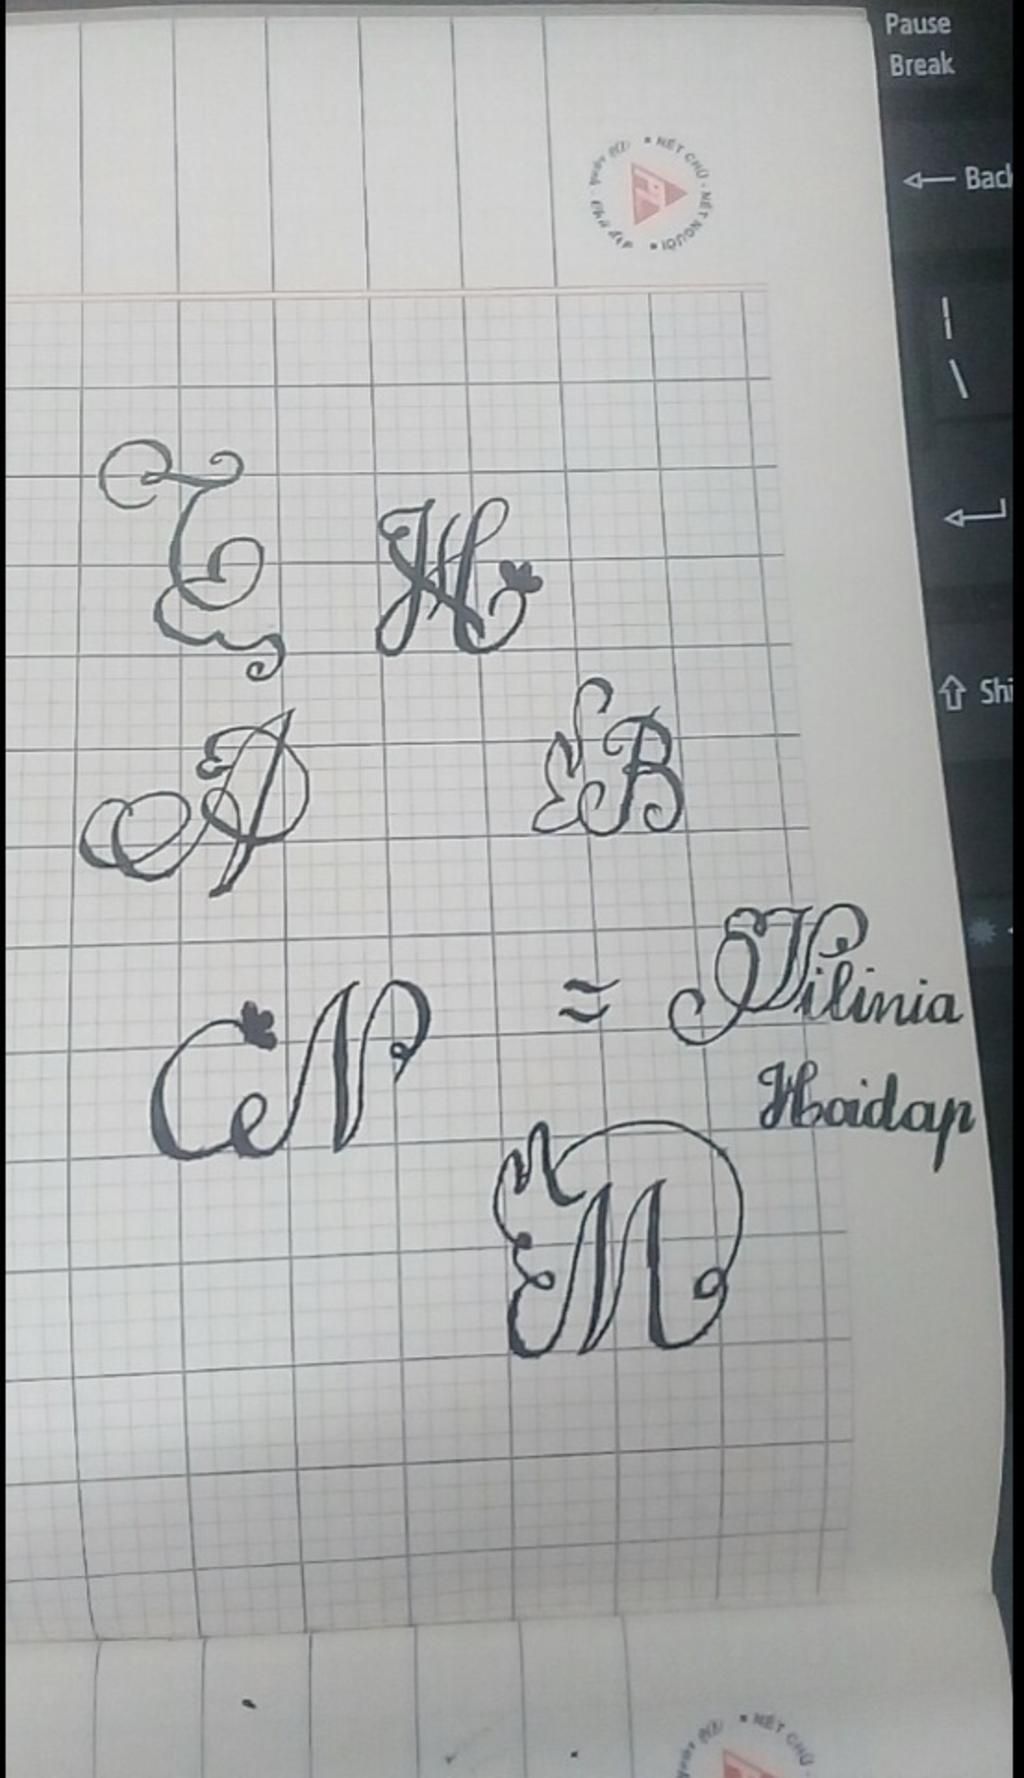 Pause
Break
Back
NÉT CHỮ - NẾT NGƯỜI
T H
Shi
A B
N = Vilinia
Haidap
M
NÉT CHỮ